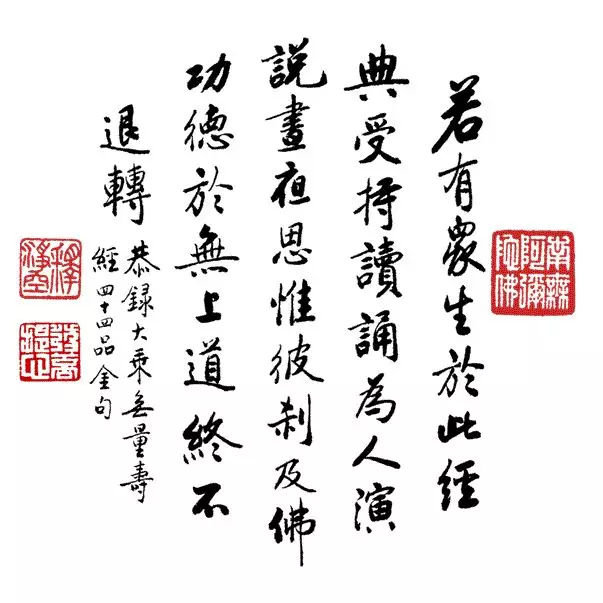 南無阿彌陀佛
若有眾生於此經
典受持讀誦為人演
說晝夜思惟彼剎及佛
功德於無上道終不
退轉
恭録大乘无量壽
經四十四品金句
釋淨空